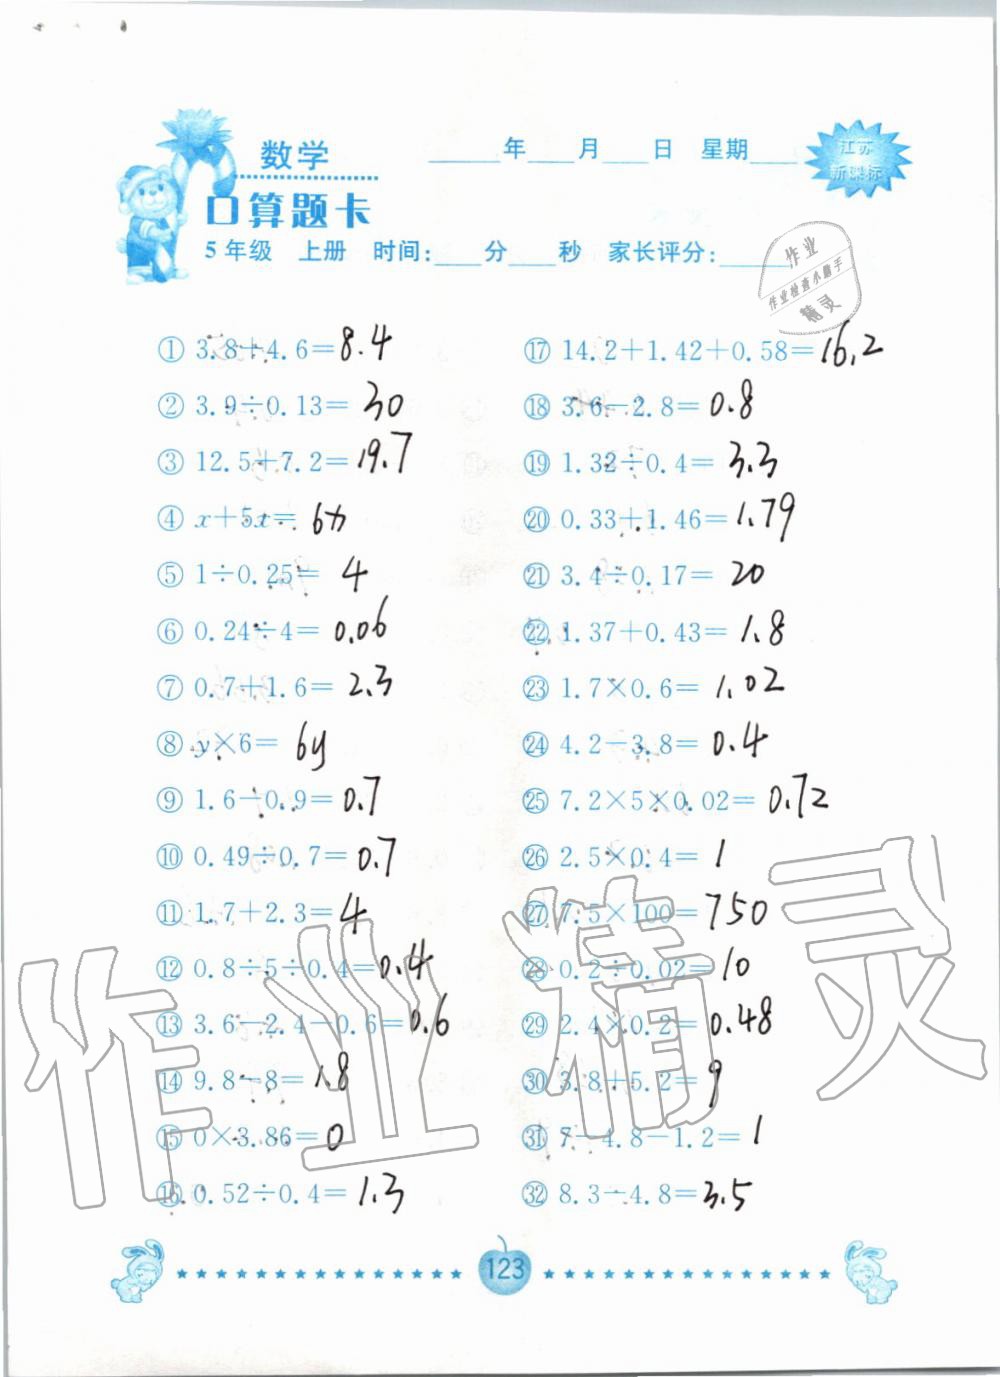 数学
____年____月____日 星期____
江苏
新课标
口算题卡
5年级 上册 时间:____分____秒 家长评分:____
作业
作业检查小助手
精灵
① 3.8+4.6=8.4
② 3.9÷0.13=30
③ 12.5+7.2=19.7
④ x+5x=6x
⑤ 1÷0.25=4
⑥ 0.24÷4=0.06
⑦ 0.7+1.6=2.3
⑧ y×6=6y
⑨ 1.6-0.9=0.7
⑩ 0.49÷0.7=0.7
⑪ 1.7+2.3=4
⑫ 0.8÷5÷0.4=0.4
⑬ 3.6-2.4-0.6=0.6
⑭ 9.8-8=1.8
⑮ 0×3.86=0
⑯ 0.52÷0.4=1.3
⑰ 14.2+1.42+0.58=16.2
⑱ 3.6-2.8=0.8
⑲ 1.32÷0.4=3.3
⑳ 0.33+1.46=1.79
㉑ 3.4÷0.17=20
㉒ 1.37+0.43=1.8
㉓ 1.7×0.6=1.02
㉔ 4.2-3.8=0.4
㉕ 7.2×5×0.02=0.72
㉖ 2.5×0.4=1
㉗ 7.5×100=750
㉘ 0.2÷0.02=10
㉙ 2.4×0.2=0.48
㉚ 3.8+5.2=9
㉛ 7-4.8-1.2=1
㉜ 8.3-4.8=3.5
作业精灵
123